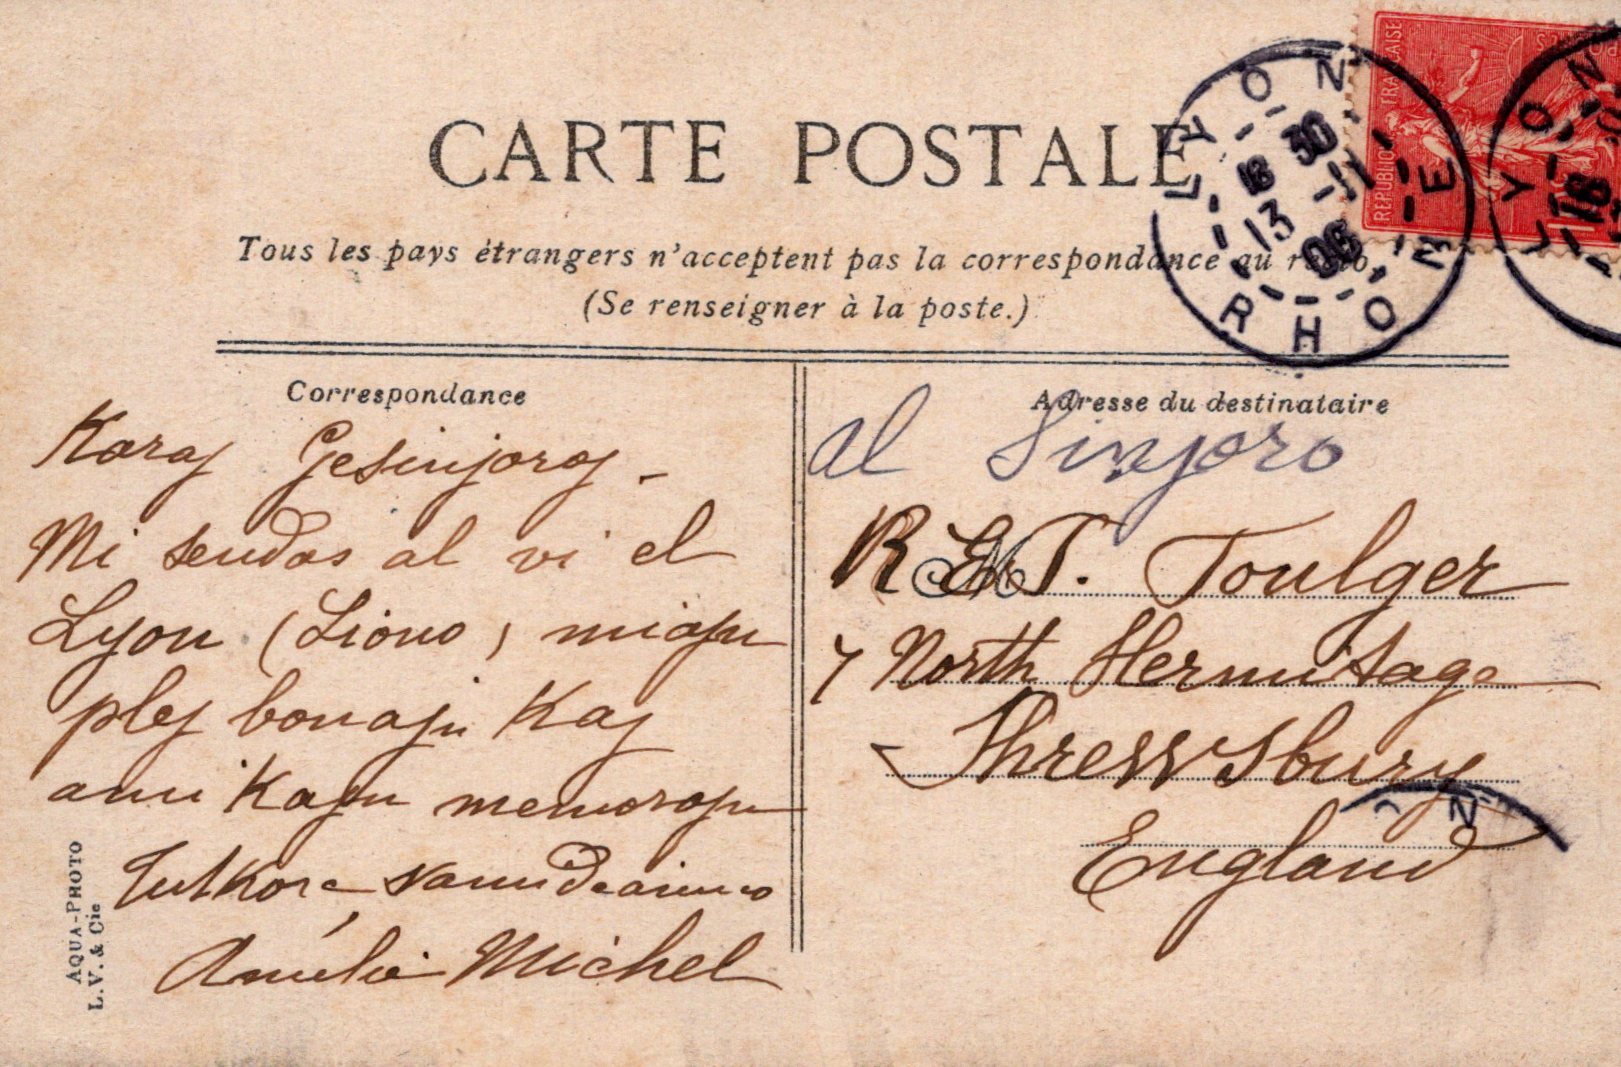 CARTE POSTALE
Tous les pays étrangers n'acceptent pas la correspondance au recto
(Se renseigner à la poste.)
REPUBLIQUE FRANÇAISE
LYON
18 30
13 -11
06
RHONE
LYON
18
Correspondance
Karaj Gesinjoroj -
Mi sendas al vi el
Lyon (Liono) miajn
plej bonajn kaj
amikajn memorojn
Tutkore samideanino
Amélie Michel
AQUA-PHOTO
L. V. & Cie
Adresse du destinataire
al Sinjoro
T. Toulger
7 North Hermitage
Shrewsbury
England
N